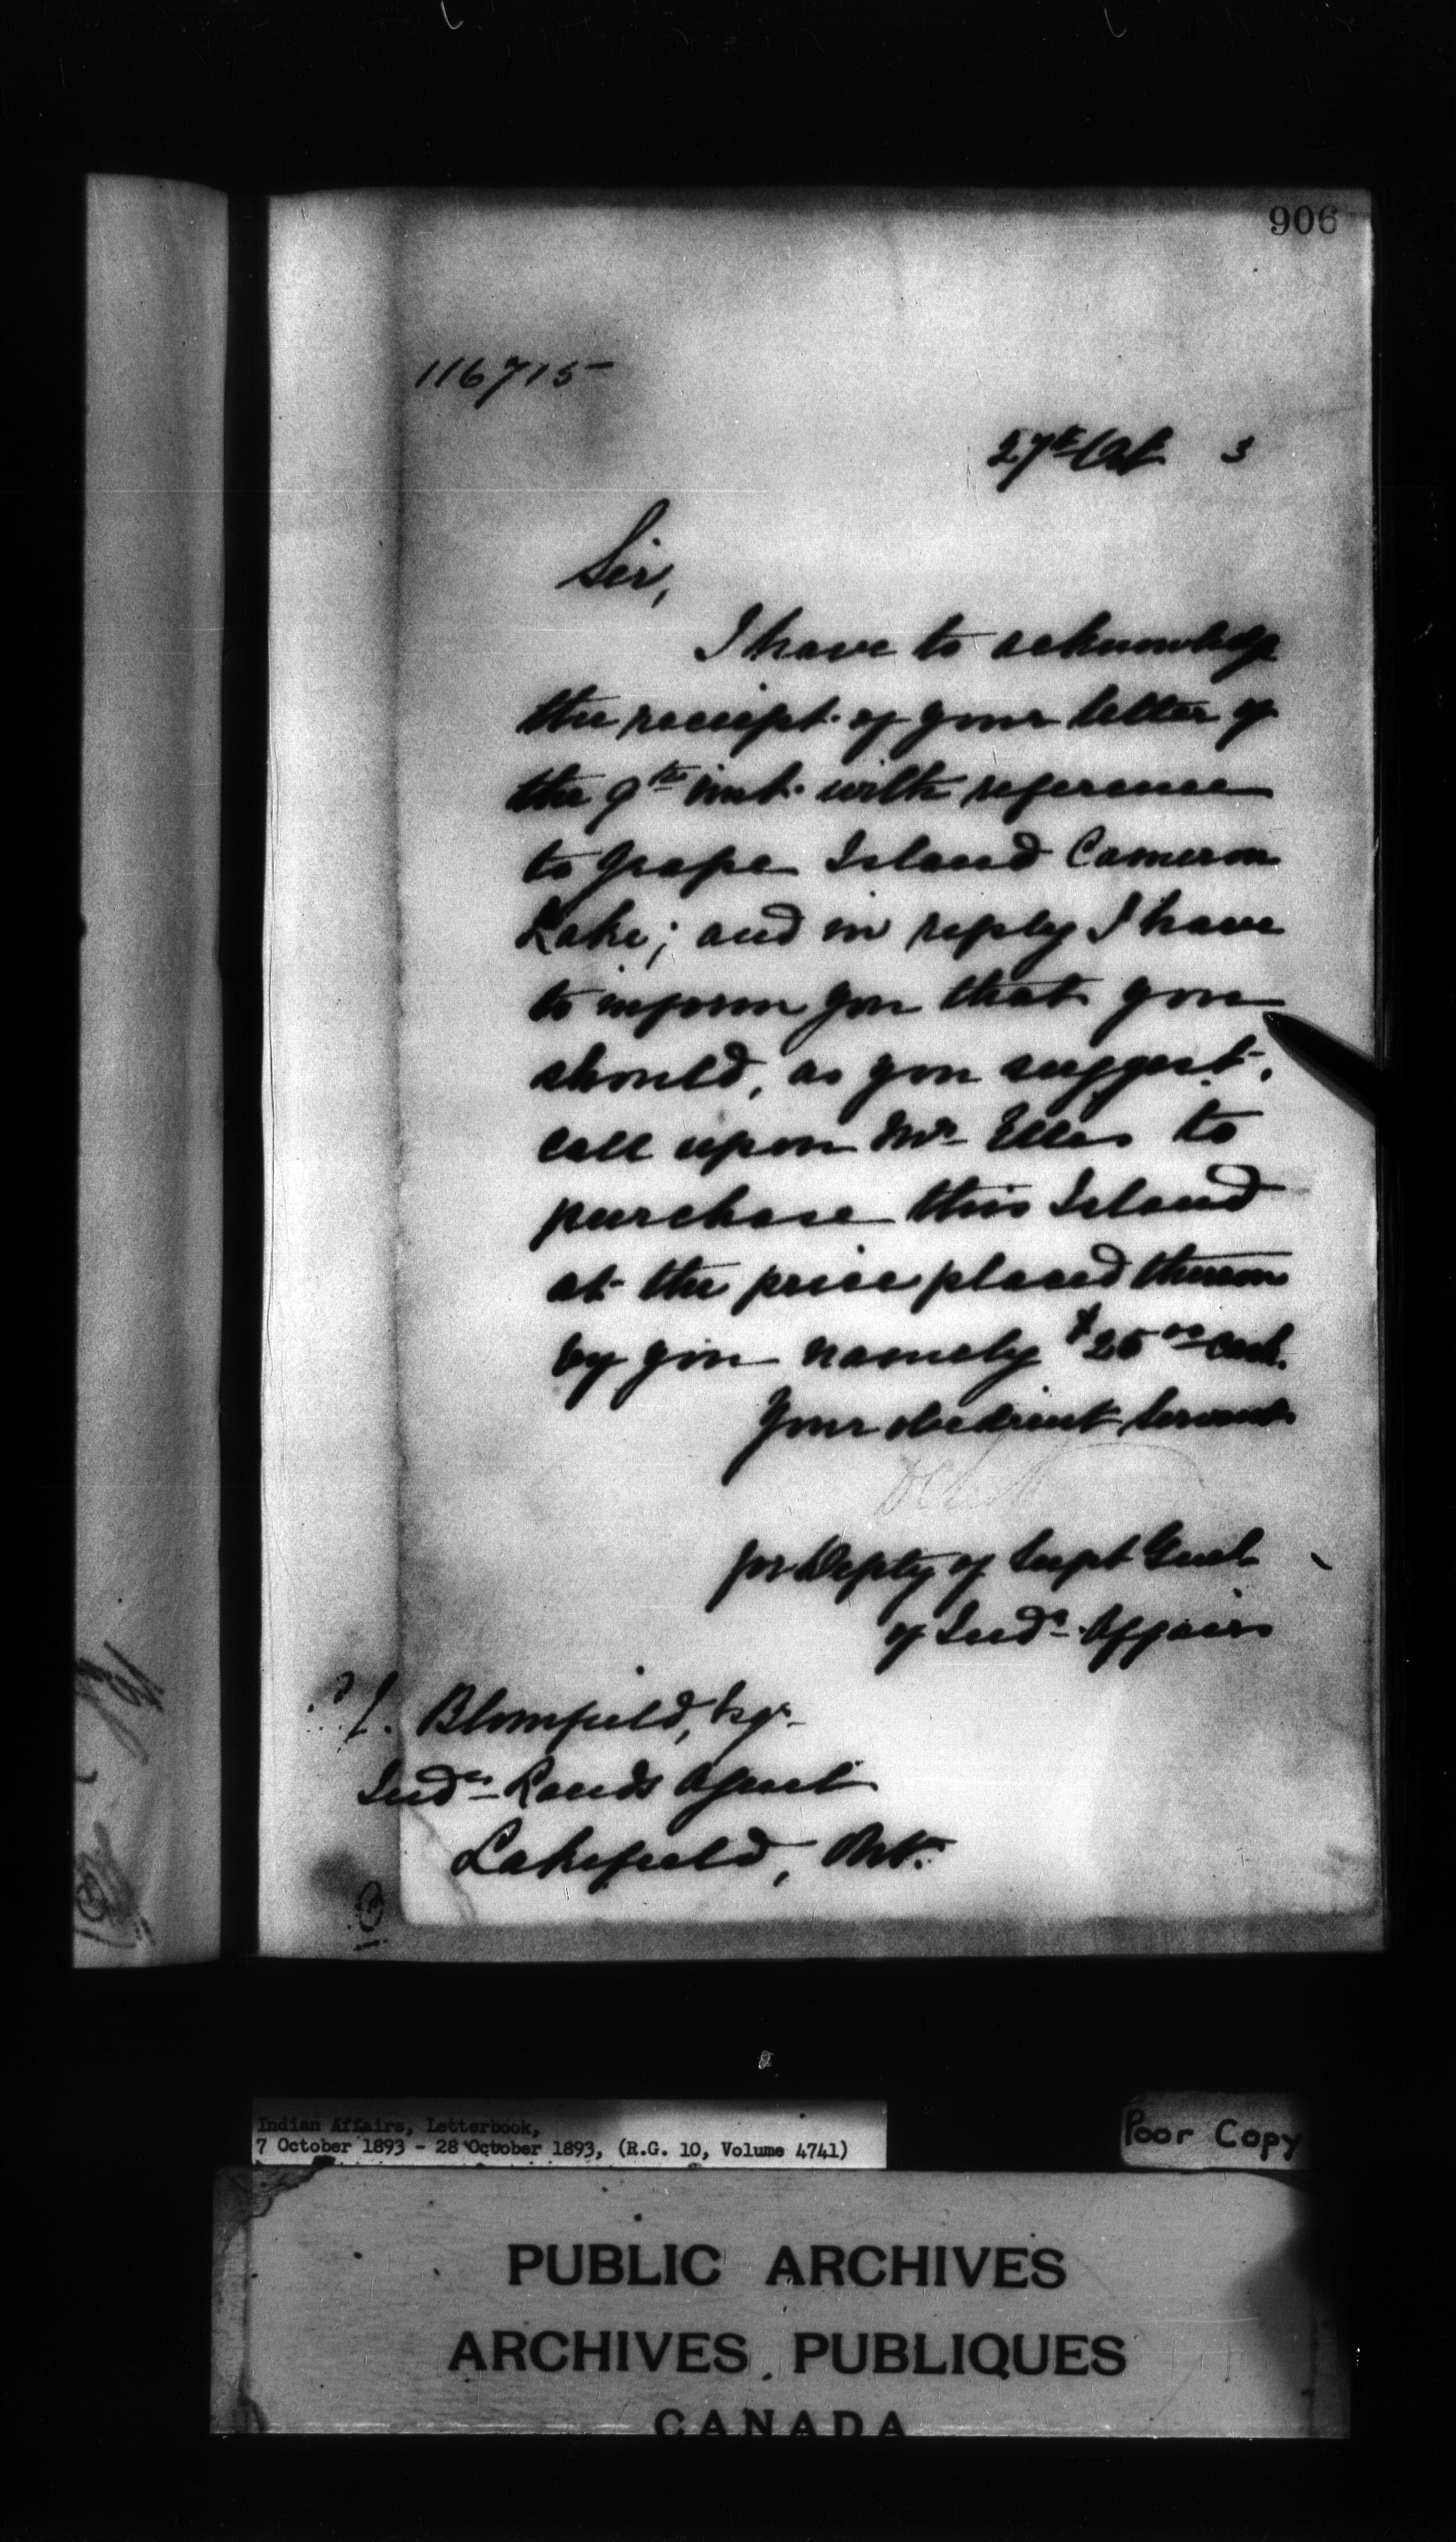 906
116715
27th Oct 3
Sir,
I have to acknowledge
the receipt of your letter of
the 9th inst. with reference
to Grape Island Cameron
Lake; and in reply I have
to inform you that you
should, as you suggest,
call upon Mr. Elles to
purchase this Island
at the price placed thereon
by you namely $25 00 cash.
Your obedient Servant
for Depty of Supt Genl
of Indn. Affairs
Blomfield, Esqr.
Indn. Lands Agent
Lakefield, Ont.
Indian Affairs, Letterbook,
7 October 1893 - 28 October 1893, (R.G. 10, Volume 4741)
Poor Copy
PUBLIC ARCHIVES
ARCHIVES PUBLIQUES
CANADA